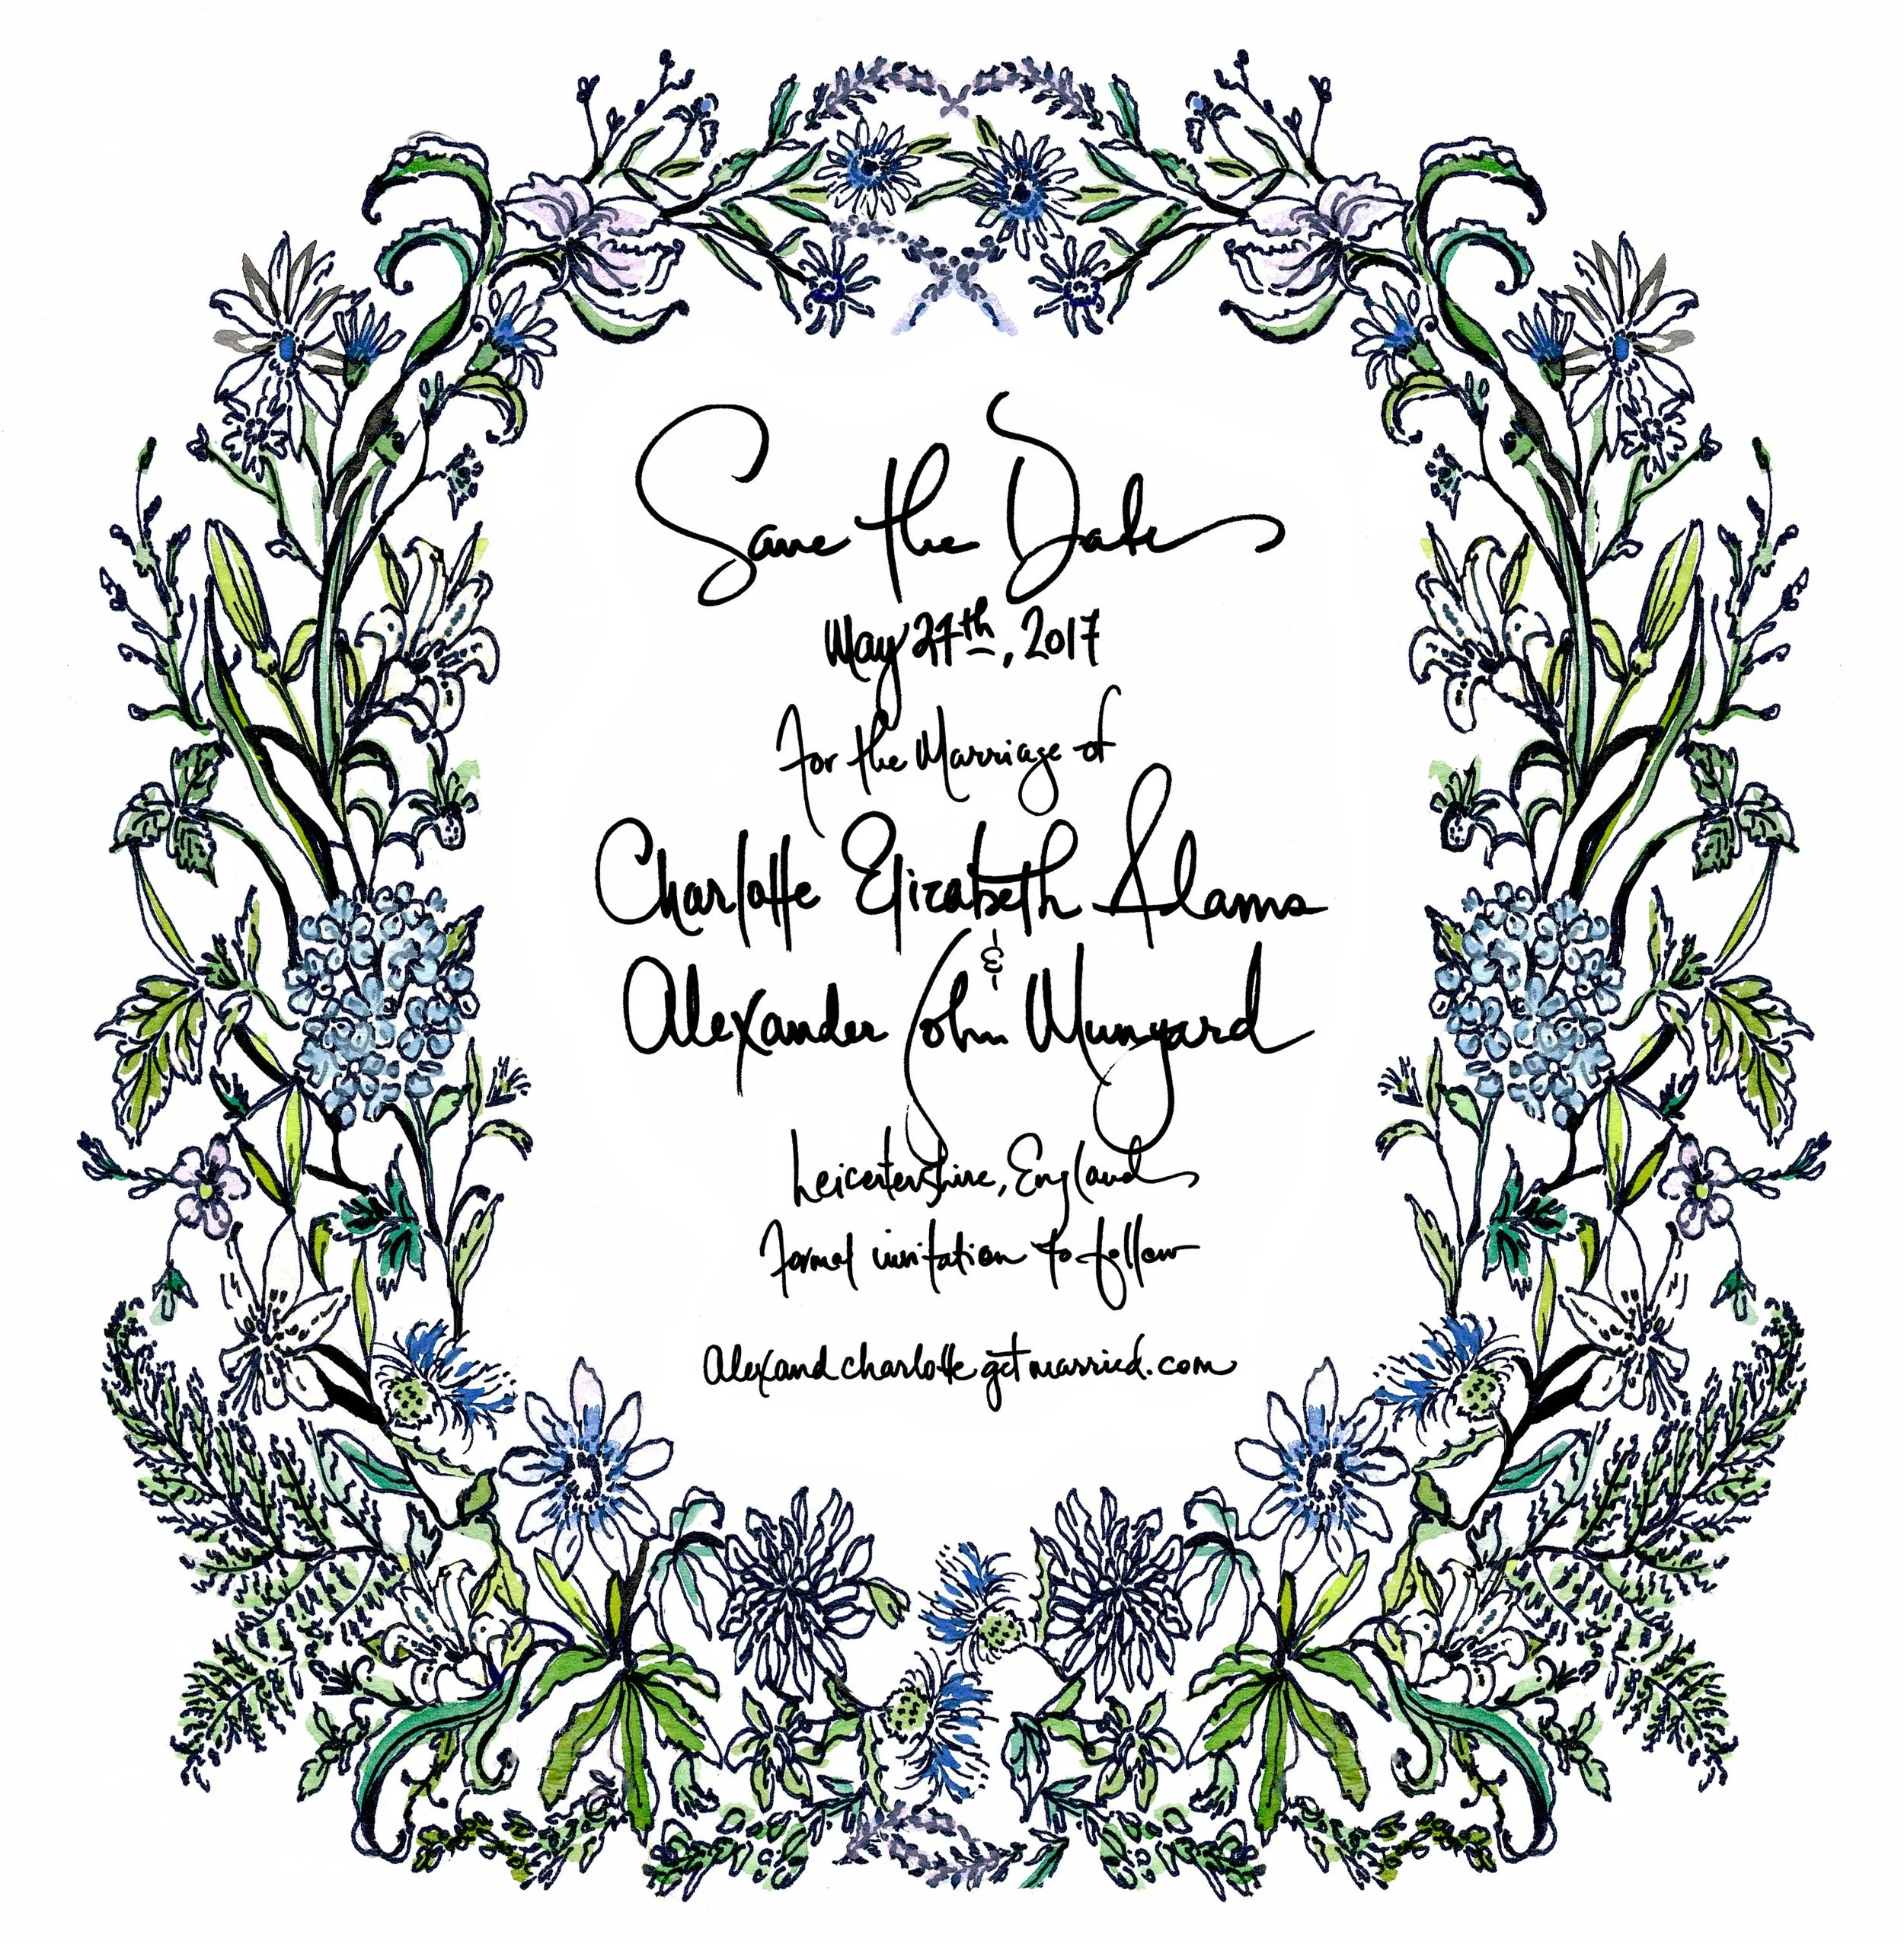 Save the Date
May 27th, 2017
For the Marriage of
Charlotte Elizabeth Adams
&
Alexander John Munyard
Leicestershire, England
Formal invitation to follow
alexandcharlottegetmarried.com